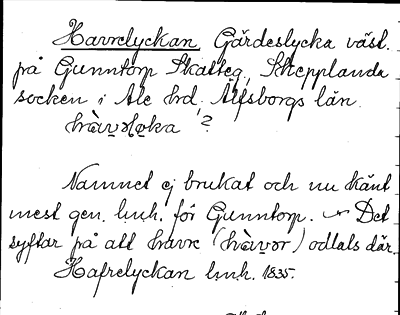 Havrelyckan Gärdeslycka väst.
på Gunntorp Skatteg., Skepplanda
socken i Ale hrd, Älfsborgs län.
?
Namnet ej brukat och nu känt
mest gen. lmh. för Gunntorp. Det
syftar på att havre (hàvər) odlats där.
Hafrelyckan lmh. 1835.